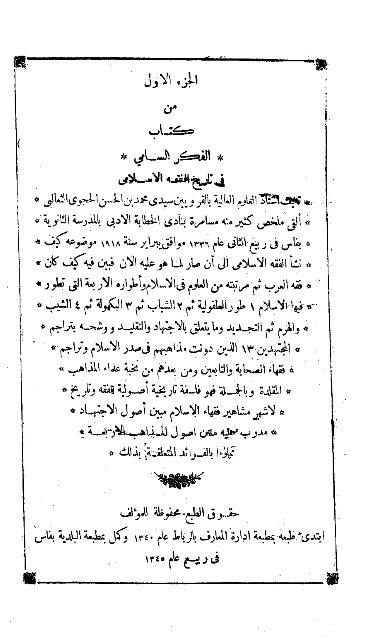 الجزء الاول
من
كتاب
* الفكر السامي *
في تاريخ الفقه الاسلامي
« استاذ العلوم العالية بالقرويين سيدي محمد بن الحسن الحجوي الثعالبي »
« ألقي ملخص كثير منه مسامرة بنادي الخطابة الادبي بالمدرسة الثانوية »
« بفاس في ربيع الثاني عام ١٣٣٦ موافق يبراير سنة ١٩١٨ موضوعه كيف »
« نشأ الفقه الاسلامي الى أن صار لما هو عليه الان فبين فيه كيف كان »
« فقه العرب ثم مرتبته من العلوم في الاسلام وأطواره الاربعة التي تطور »
« فيها الاسلام ١ طور الطفولية ثم ٢ الشباب ثم ٣ الكهولة ثم ٤ الشيب »
« والهرم ثم التجديد وما يتعلق بالاجتهاد والتقليد وشحه بتراجم »
« المجتهدين ١٣ الذين دونت مذاهبهم في صدر الاسلام وتراجم »
« فقهاء الصحابة والتابعين ومن بعدهم من نخبة علماء المذاهب »
« المقلدة وبالجملة فهو فلسفة تاريخية أصولية فقهه وتاريخ »
« لاشهر مشاهير فقهاء الاسلام مبين أصول الاجتهاد »
« اصول المذاهب الاربعة »
« بالفوائد المتعلقة بذلك »
حقوق الطبع محفوظة للمؤلف
ابتدئ طبعه بمطبعة ادارة المعارف بالرباط عام ١٣٤٠ وكمل بمطبعة البلدية بفاس
في ربيع عام ١٣٤٥